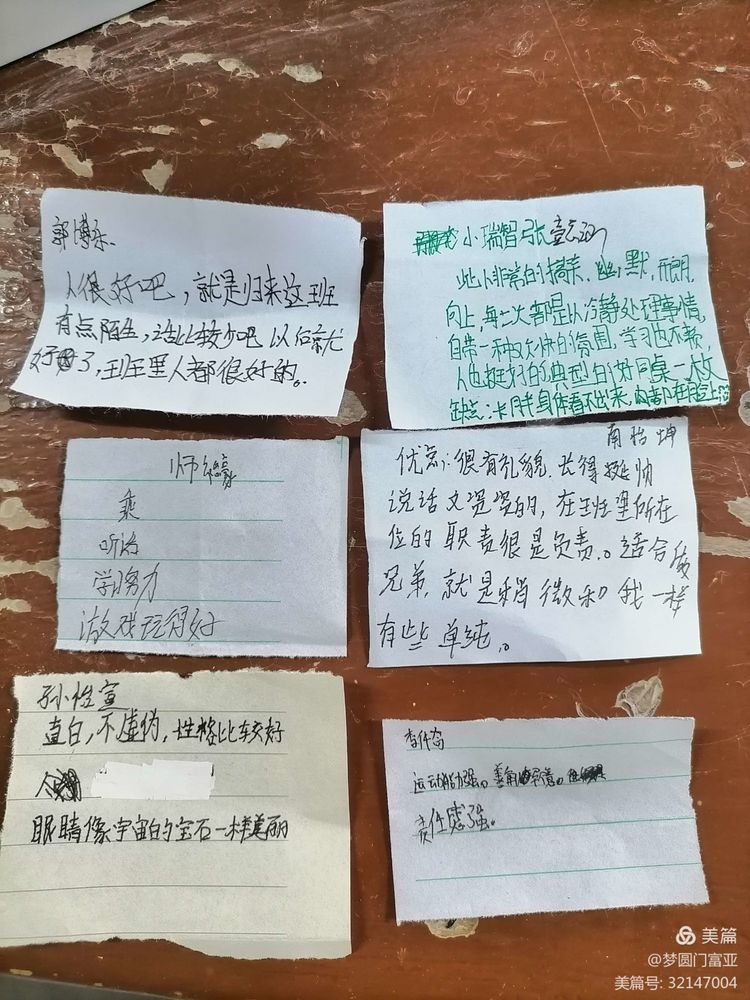 郭博
人很好吧，就是归来这班
有点陌生，话比较少吧 以后就
好了，班里人都很好的。
小瑞智 张
此人非常的搞笑、幽默，开朗
向上，每一次都是以冷静处理事情，
自带一种欢快的氛围，学习也不赖，
人也挺好的典型的好同桌一枚
缺点：卡月半身体看不出来，肉都在脸上
师缘
乘
听话
学习努力
游戏玩得好
南怡坤
优点：很有礼貌、长得挺帅
说话文绉绉的，在班里所在
位的职责很是负责。适合做
兄弟，就是稍微和我一样
有些单纯。
孙性宣
直白，不虚伪，性格比较好
眼睛像宇宙的宝石一样美丽
李
运动能力强。善
责任感强。
美篇
@梦圆门富亚
美篇号: 32147004